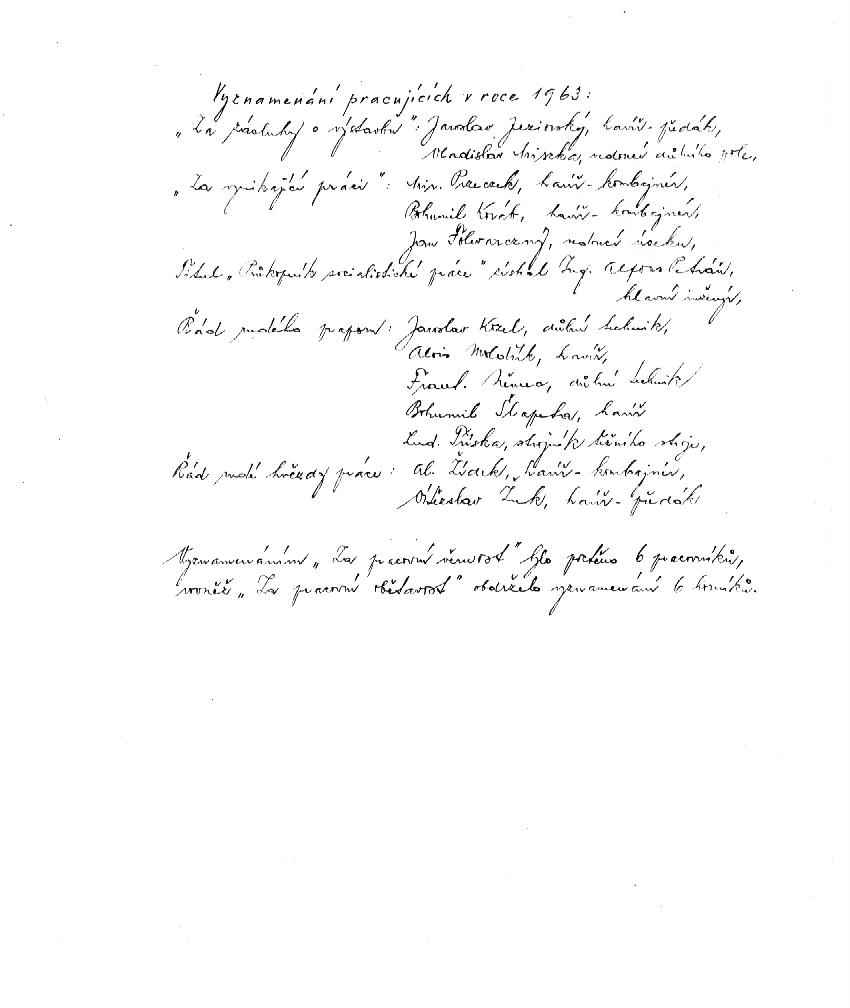 Vyznamenání pracujících v roce 1963:
„Za zásluhy o výstavbu": Jaroslav Jeziorský, havíř-předák,
Vladislav Miszka, vedoucí důlního pole,
„Za vynikající práci": Mir. Pzeczek, havíř-kombajnér,
Bohumil Kovář, havíř-kombajnér,
Jan Folwarczný, vedoucí úseku,
Titul „Průkopník socialistické práce" získal Ing. Alfons Petráň,
hlavní inženýr,
Řád rudého praporu: Jaroslav Kozel, důlní technik,
Alois havíř,
Frant. Němec, důlní technik
Bohumil Šlapeta, havíř
Lud. Příska, strojník těžního stroje,
Řád rudé hvězdy práce: Al. Žídek, havíř-kombajnér,
Vítězslav Žuk, havíř-předák
Vyznamenáním „Za pracovní věrnost" bylo poctěno 6 pracovníků,
rovněž „Za pracovní obětavost" obdrželo vyznamenání 6 horníků.